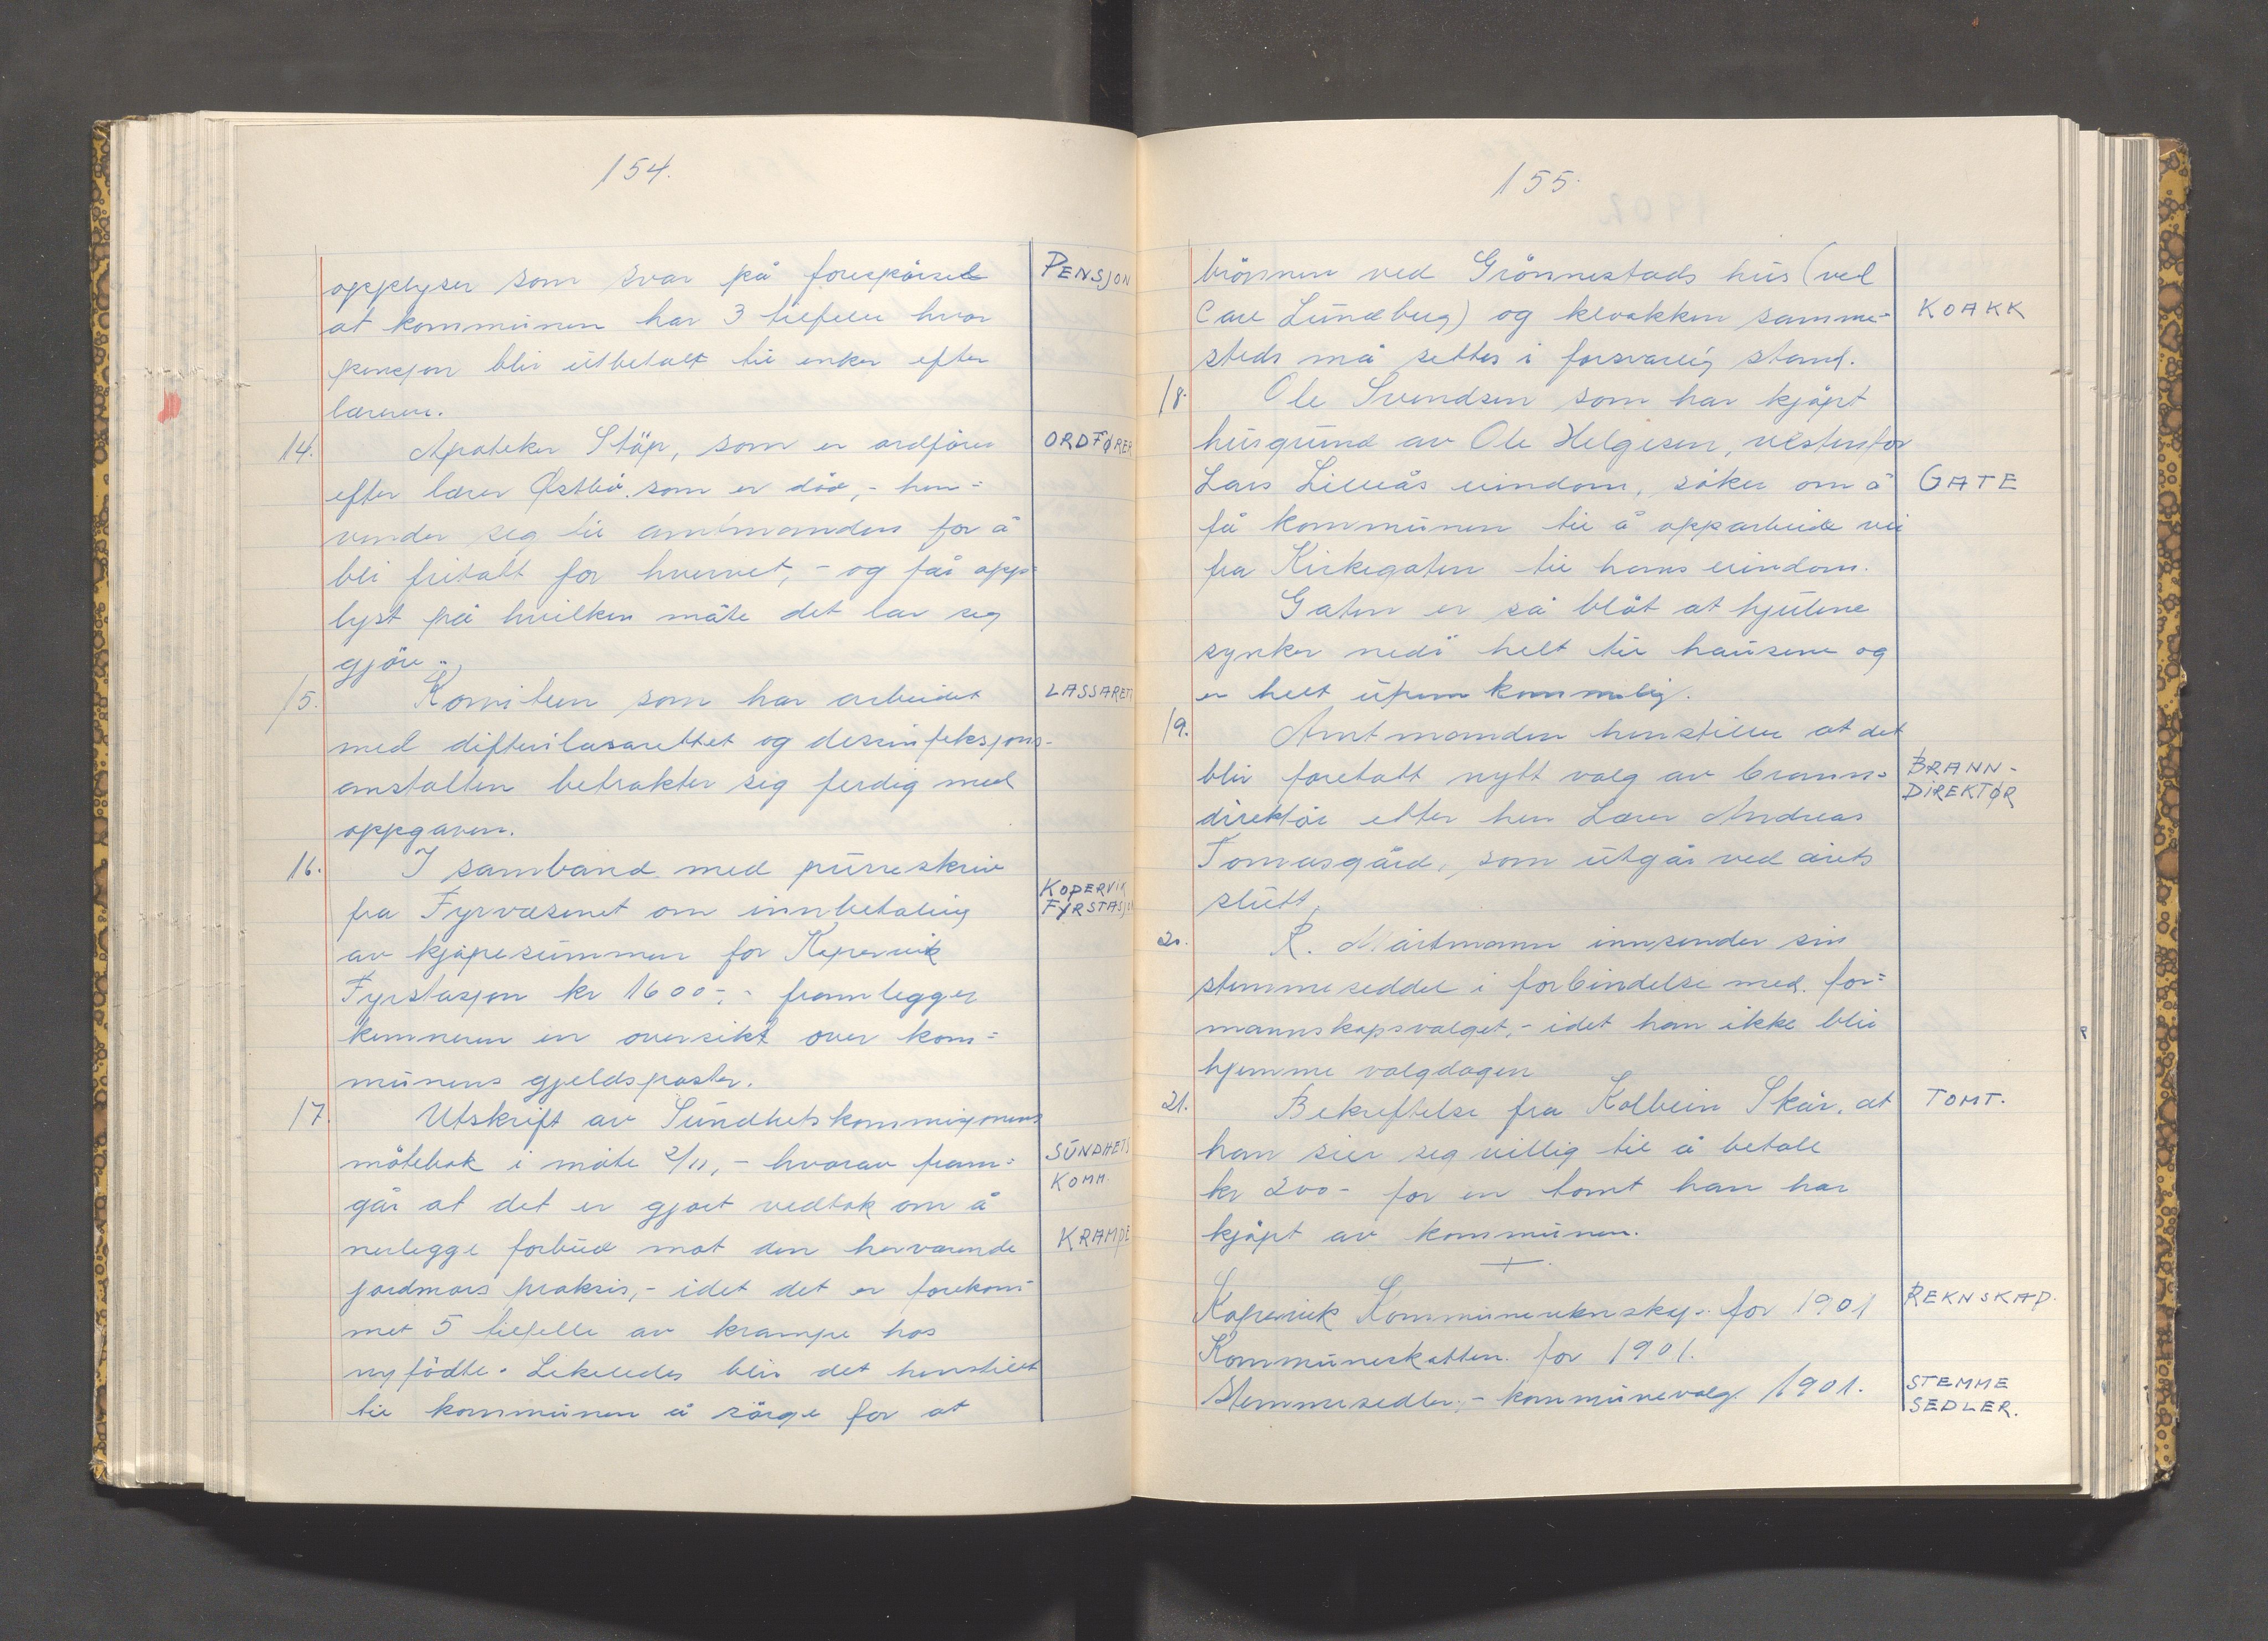 154.
opplyser som svar på forespörsel
PENSJON
at kommunen har 3 tilfelle hvor
pensjon blir utbetalt til enker efter
lærere.
14.
Apoteker Stöp, som er ordförer
ORDFØRER
efter lærer Østbö som er död, - hen-
vender seg til amtmanden for å
bli fritatt for hvervet, - og får opp=
lyst på hvilken måte det lar seg
gjöre.
15.
Komiteen som har arbeidet
LASSARETT
med difterilasarettet og desinfeksjons-
anstalten betrakter sig ferdig med
oppgaven.
16.
I samband med purreskriv
fra Fyrvæsenet om innbetaling
KOPERVIK
FYRSTASJON
av kjöpesummen for Kopervik
Fyrstasjon kr 1600-, - framlegger
kemneren en oversikt over kom=
munens gjeldsposter.
17.
Utskrift av Sundhetskommisjonens
mötebok i möte 2/11, - hvorav fram=
SUNDHETS
KOMM.
går at det er gjort vedtak om å
nerlegge forbud mot den herværende
KRAMPE
jordmors praksis, - idet det er forekom-
met 5 tilfelle av krampe hos
nyfödte. Likeledes blir det henstillet
til kommunen å sörge for at
155.
brönnen ved Grönnestads hus (ved
Carl Lundberg) og kloakken samme-
KOAKK
steds må settes i forsvarlig stand.
18.
Ole Svendsen som har kjöpt
husgrund av Ole Helgesen, vestenfor
Lars Lilleås eiendom, söker om å
GATE
få kommunen til å opparbeide vei
fra Kirkegaten til hans eiendom.
Gaten er så blöt at hjulene
synker nedi helt til hausene og
er helt ufremkommelig.
19.
Amtmanden henstiller at det
blir foretatt nytt valg av brann=
BRANN-
DIREKTØR
direktör etter herr Lærer Andreas
Tomasgård, som utgår ved årets
slutt.
20.
R. Mårtmann innsender sin
stemmeseddel i forbindelse med for=
mannskapsvalget, - idet han ikke blir
hjemme valgdagen
21.
Bekreftelse fra Kolbein Skår, at
TOMT.
han sier seg villig til å betale
kr 200- for en tomt han har
kjöpt av kommunen.
Kopervik Kommunerekneskap. for 1901
REKNSKAP.
Kommuneskatten for 1901.
Stemmesedler, - kommunevalg 1901.
STEMME
SEDLER.